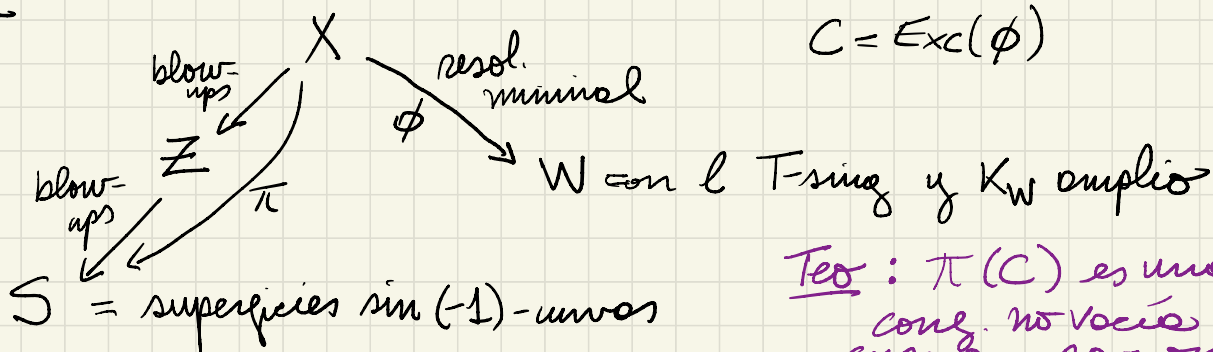 X
C = Exc(ϕ)
blow-ups
resol. minimal
ϕ
Z
W con l T-sing y K_W amplio
blow-ups
π
S = superficies sin (-1)-curvas
Teo : π(C) es una
cong. no vacía